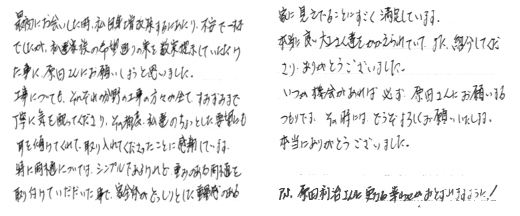 最初にお会いした時、私自身増改築するにあたり、不安で一杯
でしたが、私達家族の希望通りの案を数案提示していただけ
た事に、原田さんにお願いしようと思いました。
工事についても、それぞれの分野の工事の方々が全て、すみずみまで
丁寧に気を配ってくださり、その都度、私達のちょっとした要望にも
耳を傾けてくれて、取り入れてくださったことに感謝しています。
特に雨樋については、シンプルであるけれど、重みのある雨樋を
取り付けていただいた事で、家全体がどっしりとした重厚感のある
家に見えてることにすごく満足しています。
本当に良い大工さん達をかかえられていて、また、紹介してくだ
さり、ありがとうございました。
いつか機会があれば必ず、原田さんにお願いする
つもりです。その時にはどうぞよろしくお願いいたします。
本当にありがとうございました。
P.S. 原田